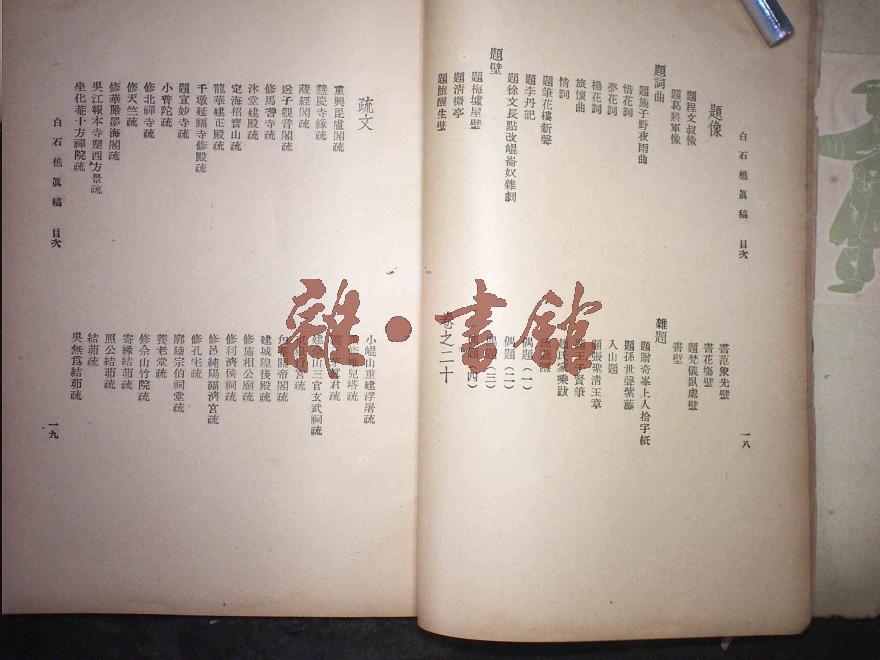 白石樵眞稿 目次
一八
題像
題程文叔像
題葛將軍像
題詞曲
題施子野夜雨曲
惜花詞
夢花詞
楊花詞
旅懷曲
情詞
題筆花樓新聲
題李丹記
題徐文長點改崐崙奴雜劇
題壁
題梅墟屋壁
題清微亭
題飽醒生壁
書范象先壁
書花塢壁
題梵儀臥處壁
書壁
雜題
題耐奇峯上人拾字紙
題孫世聲紫藤
入山題
題張聖清玉章
題王子賢筆
題氏家乘跋
偶題（一）
偶題（二）
偶題（三）
題（四）
卷之二十
雜·書館
疏文
重興毘盧閣疏
慧慶寺緣疏
藏經閣疏
送子觀音閣疏
修馬耆寺疏
沐堂建殿疏
定海招寶山疏
龍華建正殿疏
千墩延福寺修殿疏
題宜妙寺疏
小普陀疏
修北禪寺疏
修天竺疏
修華嚴邵海閣疏
吳江報本寺塑西方景疏
坐化菴十方禪院疏
小崐山重建浮屠疏
兒塔疏
君疏
建佘山三官玄武祠疏
宮疏
關帝閣疏
建城隍後殿疏
修施相公廟疏
修利濟侯祠疏
修呂純陽福濟宮疏
修孔宅疏
廓陸宗伯祠堂疏
養老堂疏
修佘山竹院疏
寄緣結茆疏
照公結茆疏
結茆疏
吳無爲結茆疏
白石樵眞稿 目次
一九